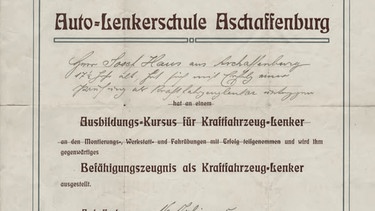 Auto-Lenkerschule Aschaffenburg
Herr Josef Haus aus Aschaffenburg
hat sich mit Erfolg einer
Prüfung als Kraftfahrzeuglenker unterzogen
hat an einem
Ausbildungs-Kursus für Kraftfahrzeug-Lenker
an den Montierungs-, Werkstatt- und Fahrübungen mit Erfolg teilgenommen und wird ihm
gegenwärtiges
Befähigungszeugnis als Kraftfahrzeug-Lenker
ausgestellt.